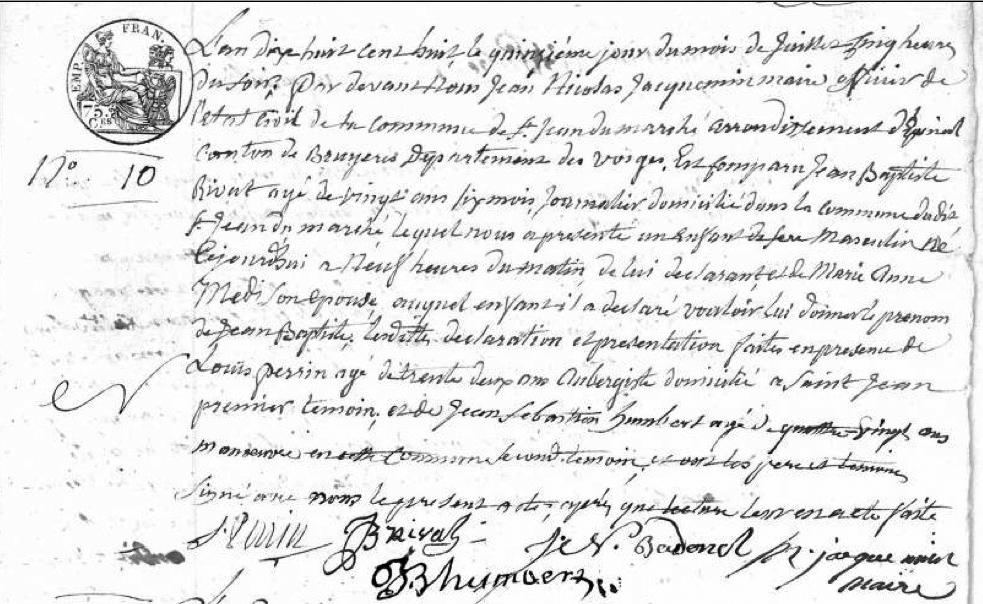 EMP. FRAN.
75.
C.ES
N° 10
L'an dix huit cent huit, le quinzième jour du mois de Juillet Cinq heures
du soir, Par devant Nous Jean Nicolas Jacquemin maire officier de
l'état Civil de la commune de St. Jean du marché arrondissement d'Epinal
Canton de Bruyeres Département des vosges, Est Comparu Jean Baptiste
Rivat agé de vingt ans six mois, Journalier domicilié dans la commune dudit
St. Jean du marché lequel nous a présenté un Enfant de sexe Masculin Né
Cejourd'hui a Neuf heures du matin, de lui déclarant, et de Marie Anne
son Epouse, auquel enfant il a déclaré vouloir lui donner le prenom
de Jean Baptiste, lesdittes déclaration et présentation faites en presence de
Louis perrin agé de trente deux ans Aubergiste domicilié a Saint Jean
premier temoin, et de Jean Sebastien humbert agé de quattre vingt ans
manoeuvre en cette Commune Second temoin, et ont les pere et temoins
Signé avec nous le présent acte, après que lecture leur en a eté faite
L. Perin JBRivat J. N. jacquemin
JBhumbert maire